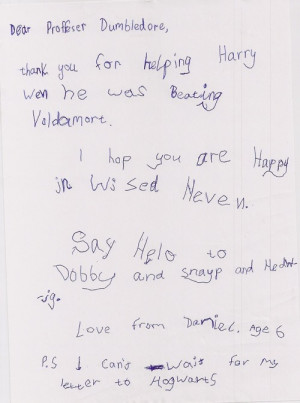 Dear Proffeser Dumbledore,
thank you for helping Harry
wen he was Beating
Voldamort.
I hop you are Happy
in Wised Heven.
Say Helo to
Dobby and snayp and Hedw-
-ig.
Love from Daniel. Age 6
P.S I can't wait for my
letter to Hogwarts